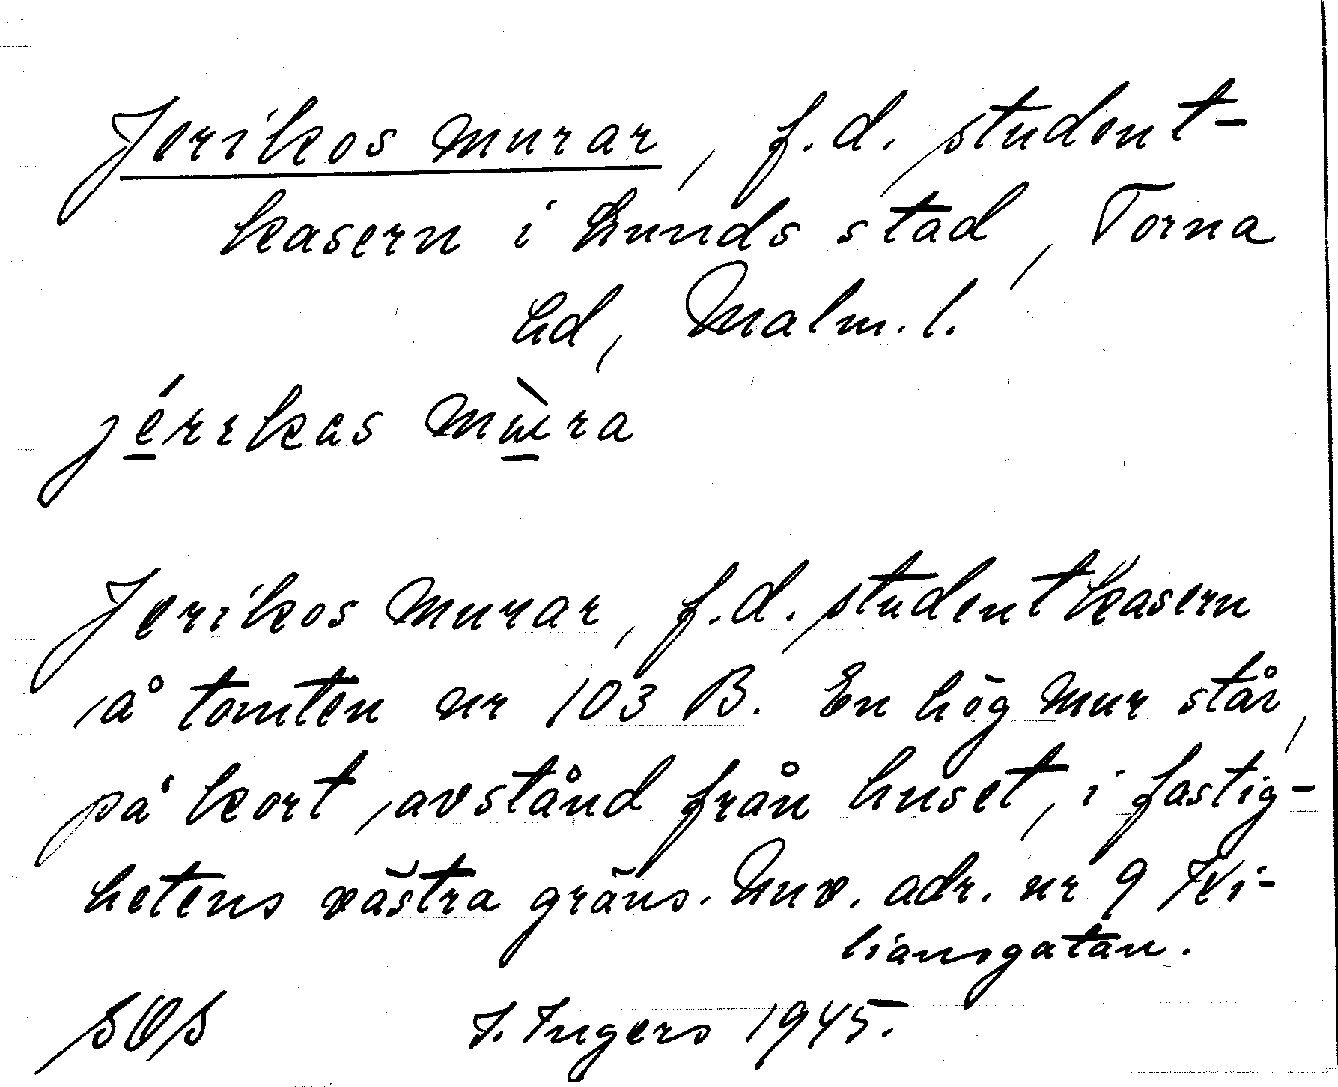 Jerikos murar, f.d. student-
kasern i Lunds stad, Torna
hd, Malm. l.
jérrkas mùra
Jerikos murar, f.d. studentkasern
å tomten nr 103 B. En hög mur står,
på kort avstånd från huset, i fastig-
hetens västra gräns. Nuv. adr. nr 9 Ki-
liansgatan.
SOS I. Ingers 1945.